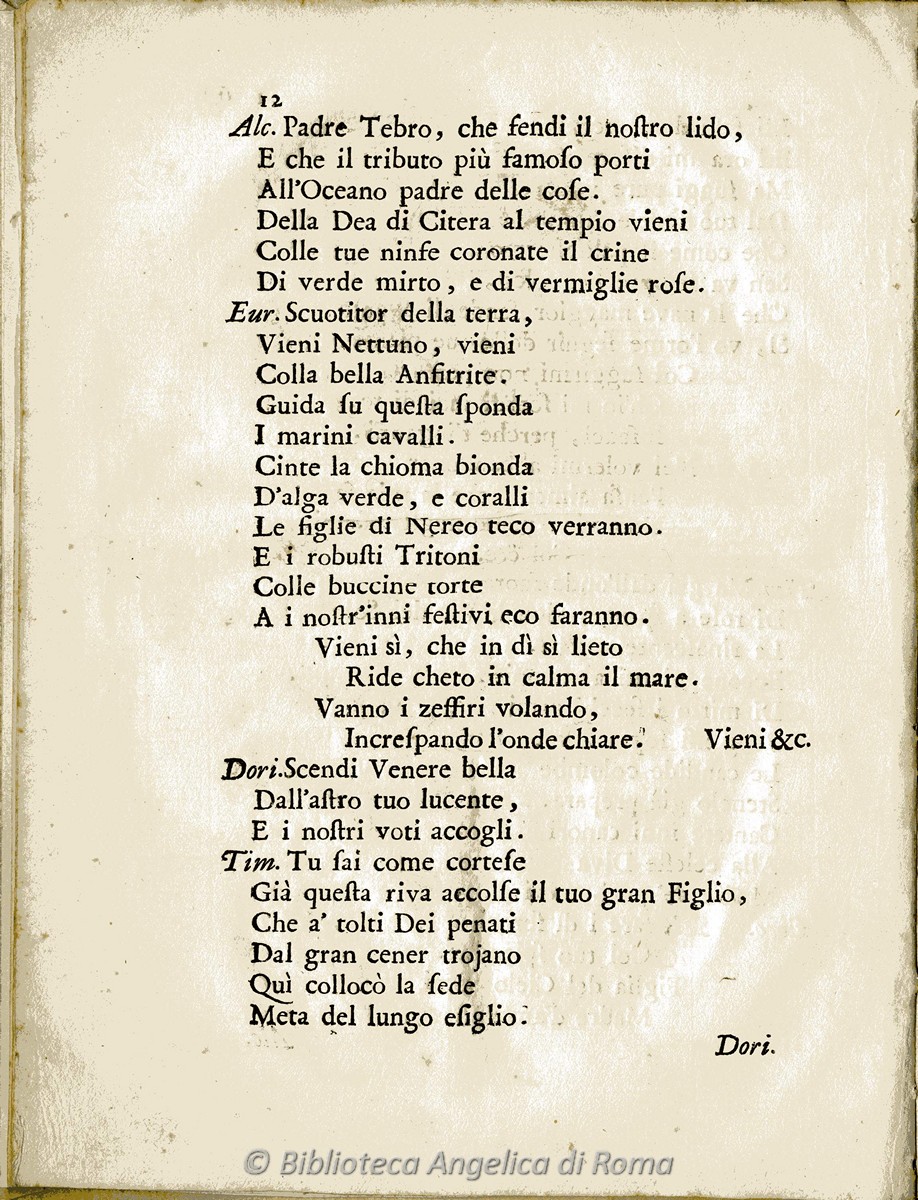 12
Alc. Padre Tebro, che fendi il noſtro lido,
E che il tributo più famoſo porti
All'Oceano padre delle coſe.
Della Dea di Citera al tempio vieni
Colle tue ninfe coronate il crine
Di verde mirto, e di vermiglie roſe.
Eur. Scuotitor della terra,
Vieni Nettuno, vieni
Colla bella Anfitrite.
Guida ſu queſta ſponda
I marini cavalli.
Cinte la chioma bionda
D'alga verde, e coralli
Le figlie di Nereo teco verranno.
E i robuſti Tritoni
Colle buccine torte
A i noſtr'inni feſtivi eco faranno.
Vieni sì, che in dì sì lieto
Ride cheto in calma il mare.
Vanno i zeffiri volando,
Increſpando l'onde chiare. Vieni &c.
Dori. Scendi Venere bella
Dall'aſtro tuo lucente,
E i noſtri voti accogli.
Tim. Tu ſai come corteſe
Già queſta riva accolſe il tuo gran Figlio,
Che a' tolti Dei penati
Dal gran cener trojano
Quì collocò la ſede
Meta del lungo eſiglio.
Dori.
© Biblioteca Angelica di Roma